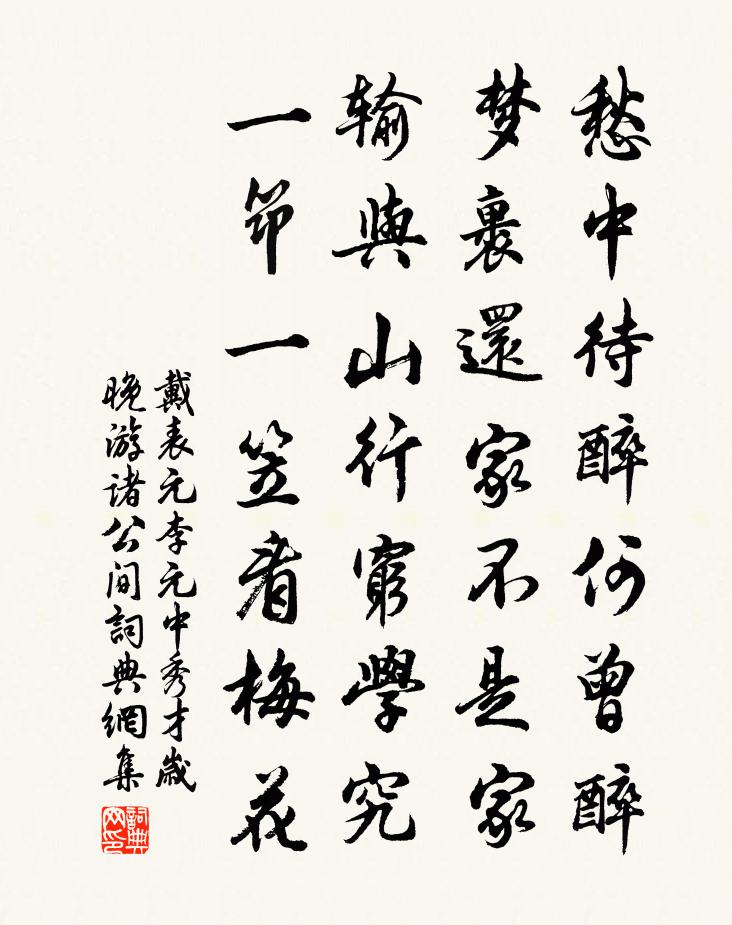 愁中待醉何曾醉
梦裏還家不是家
輸與山行窮學究
一筇一笠看梅花
戴表元李元中秀才歲
晚游诸公间詞典網集
詞典
网印